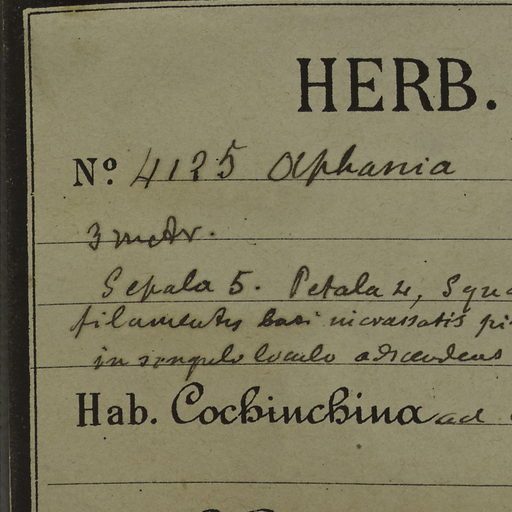 HERB.
Nº. 4125 Aphania
3 metr.
Sepala 5. Petala 4, Squa
filamentis basi incrassatis pi
in singulo loculo adscendens
Hab. Cochinchina ad